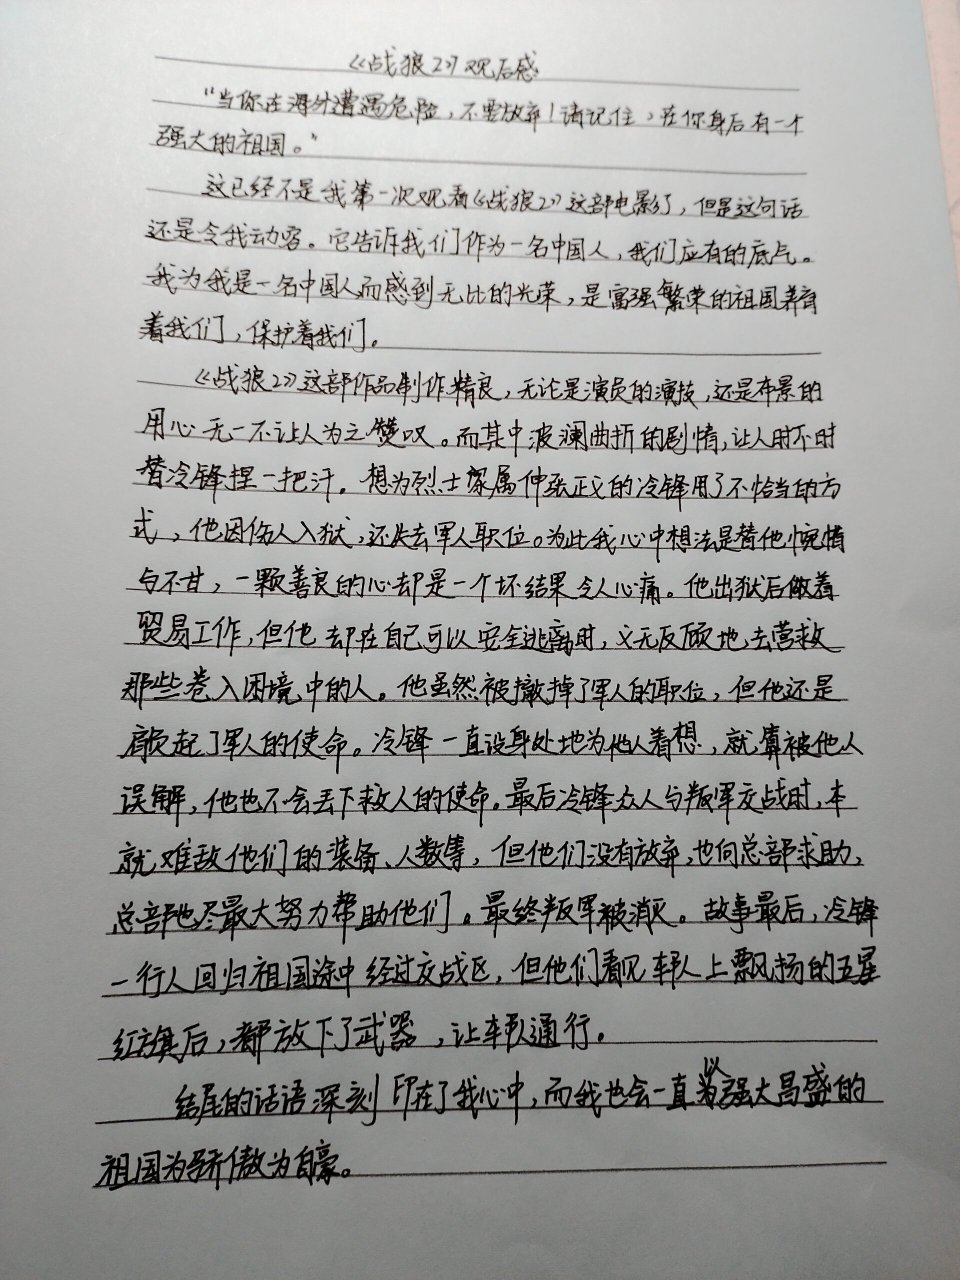 《战狼2》观后感
“当你在海外遭遇危险，不要放弃！请记住，在你身后有一个
强大的祖国。”
这已经不是我第一次观看《战狼2》这部电影了，但是这句话
还是令我动容。它告诉我们作为一名中国人，我们应有的底气。
我为我是一名中国人而感到无比的光荣，是富强繁荣的祖国养育
着我们，保护着我们。
《战狼2》这部作品制作精良，无论是演员的演技，还是布景的
用心无一不让人为之赞叹。而其中波澜曲折的剧情，让人时不时
替冷锋捏一把汗。想为烈士家属伸张正义的冷锋用了不恰当的方
式，他因伤人入狱，还失去军人职位。为此我心中想法是替他惋惜
与不甘，一颗善良的心却是一个坏结果令人心痛。他出狱后做着
贸易工作，但他却在自己可以安全逃离时，义无反顾地去营救
那些卷入困境中的人。他虽然被撤掉了军人的职位，但他还是
肩负起了军人的使命。冷锋一直设身处地为他人着想，就算被他人
误解，他也不会丢下救人的使命。最后冷锋众人与叛军交战时，本
就难敌他们的装备、人数等，但他们没有放弃，也向总部求助，
总部也尽最大努力帮助他们。最终叛军被消灭。故事最后，冷锋
一行人回归祖国途中经过交战区，但他们看见车队上飘扬的五星
红旗后，都放下了武器，让车队通行。
结尾的话语深刻印在了我心中，而我也会一直以强大昌盛的
祖国为骄傲为自豪。